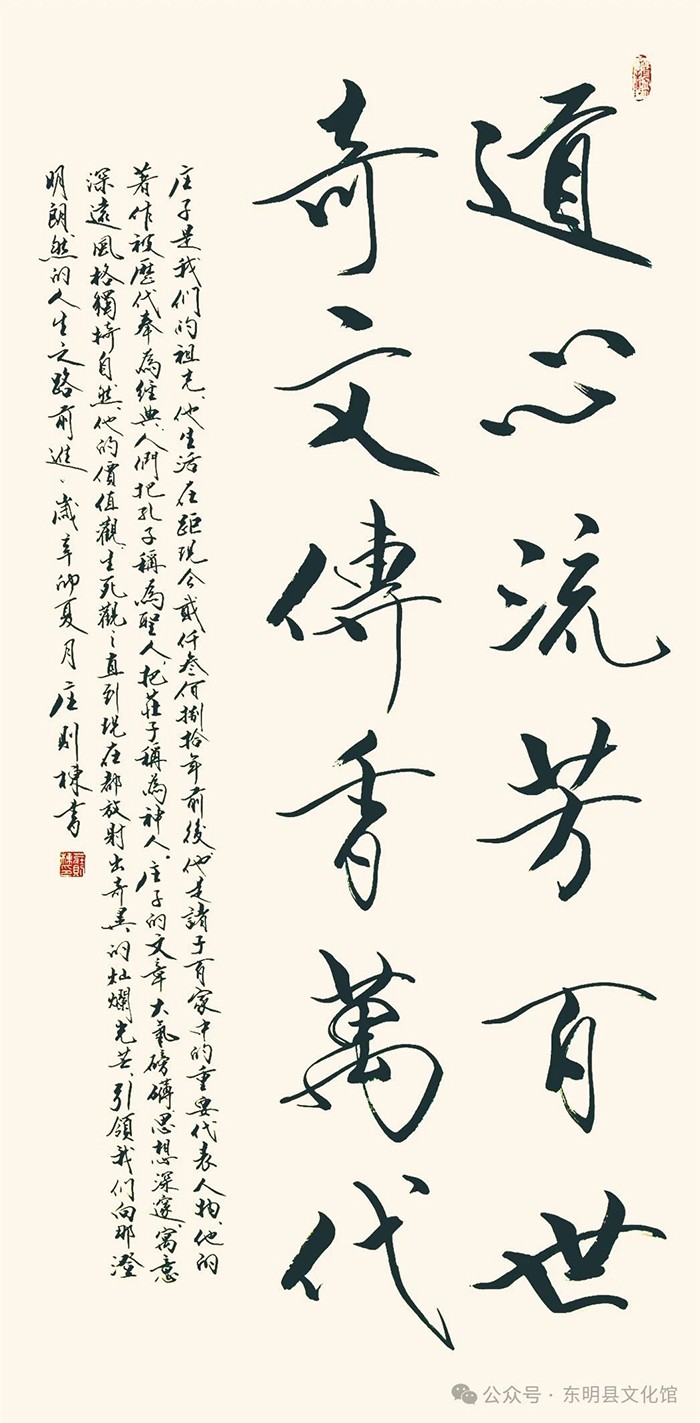 道心流芳百世
奇文傳香萬代
庄子是我们的祖先、他生活在距现今贰仟叁佰捌拾年前後、他是諸子百家中的重要代表人物、他的
著作被歷代奉為经典、人們把孔子稱為聖人、把莊子稱為神人。庄子的文章大氣磅礴思想深邃、寓意
深遠風格獨特自然、他的價值觀、生死觀、直到现在都放射出奇異的灿爛光芒、引領我们向那澄
明朗然的人生之路前進、歲辛卯夏月庄则棟書
公众号 · 东明县文化馆